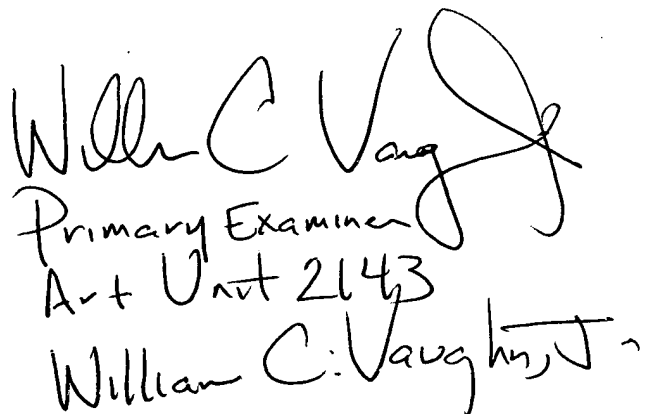 William C Vaug Jr
Primary Examiner
Art Unit 2143
William C. Vaughn, Jr